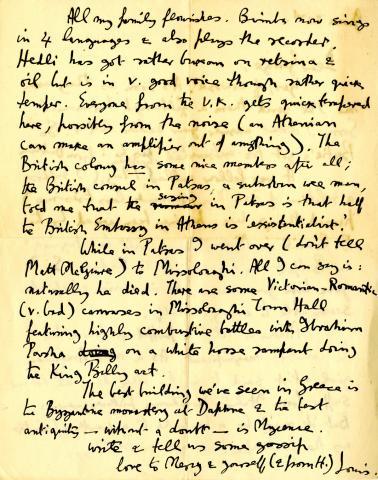 All my family flourishes. Bimba now sings
in 4 languages & also plays the recorder.
Hedli has got rather buxom on retsina &
oil but is in v. good voice though rather quick
temper. Everyone from the U.K. gets quick tempered
here, possibly from the noise (an Athenian
can make an amplifier out of anything). The
British colony has some nice members after all;
the British consul in Patras, a suburban wee man,
told me that the saying in Patras is that half
the British Embassy in Athens is 'existentialist'.
While in Patras I went over (don't tell
Matt McGuire) to Missolonghi. All I can say is:
naturally he died. There are some Victorian-Romantic
(v. bad) canvases in Missolonghi Town Hall
featuring highly combustive battles with Ibrahim
Pasha on a white horse rampant doing
the King Billy act.
The best building we've seen in Greece is
the Byzantine monastery at Daphne & the best
antiquity — without a doubt — is Mycenae.
Write & tell us some gossip
love to Mercy & yourself (& from H.) Louis.